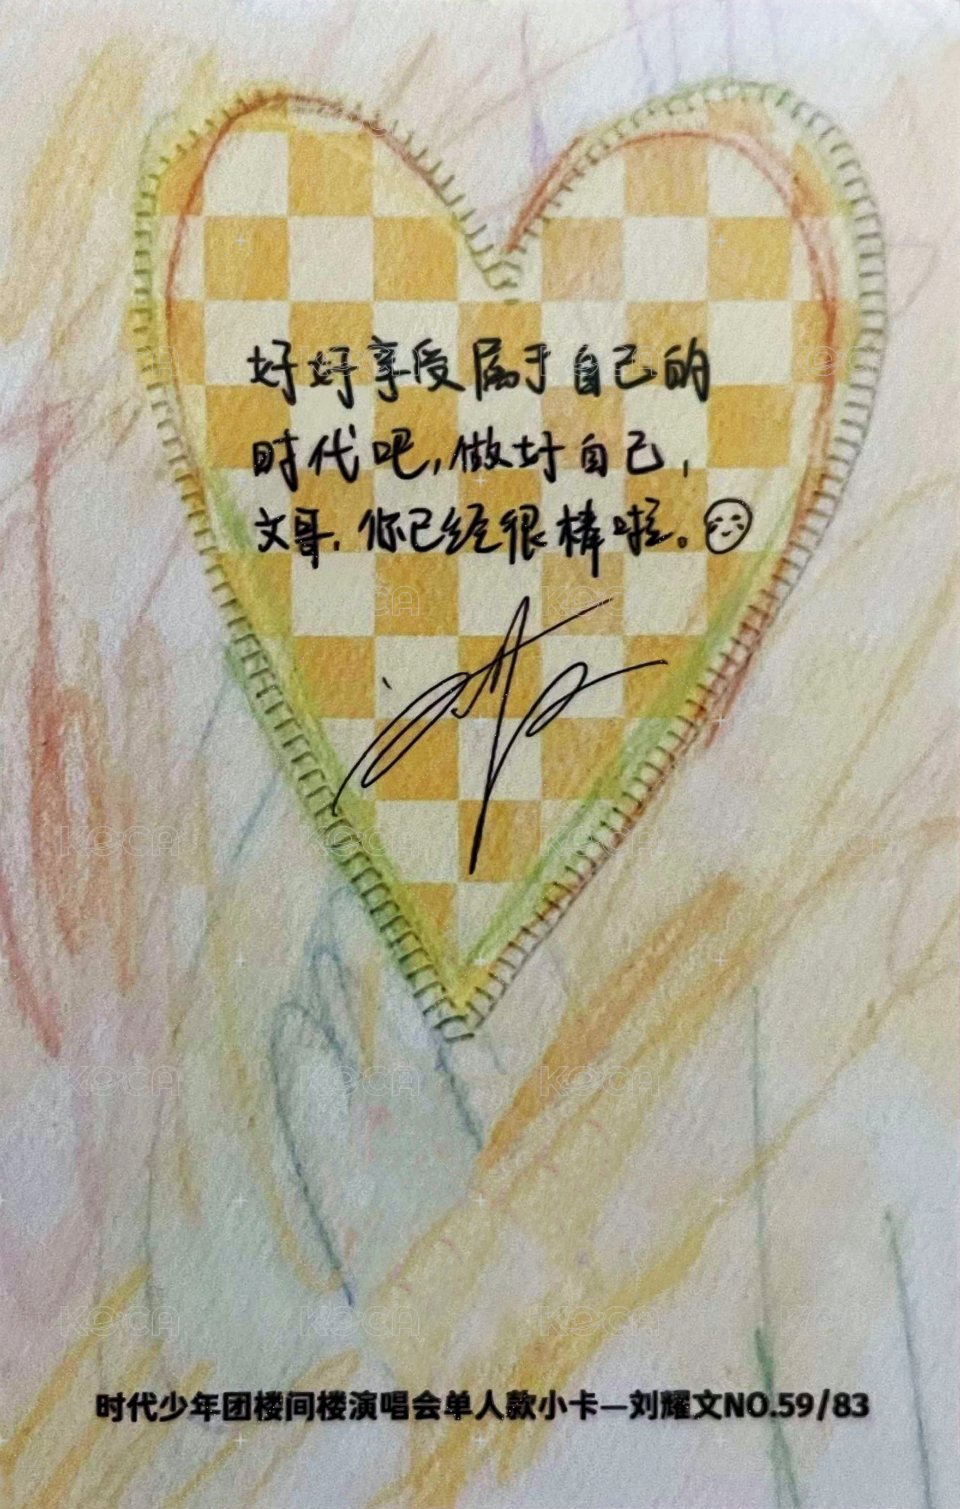 好好享受属于自己的
时代吧,做好自己,
文哥,你已经很棒啦。
时代少年团楼间楼演唱会单人款小卡—刘耀文NO.59/83
KOCA